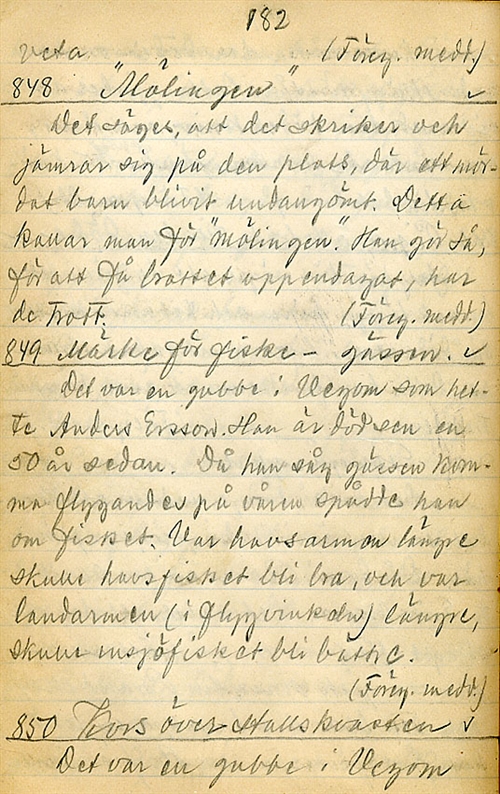 182
veta. (Föreg. medd.)
848 "Mölingen" ✓
Det säges, att det skriker och
jämrar sig på den plats, där ett mör-
dat barn blivit undangömt. Detta
kallar man för "mölingen." Han gör så,
för att få brottet uppendagat, har
de trott. (Föreg. medd.)
849 Märke för fiske - gässen. ✓
Det var en gubbe i Vezom som het-
te Anders Ersson. Han är död sen en
50 år sedan. Då han såg gässen kom-
ma flygandes på våren spådde han
om fisket. Var havsarmen längre
skulle havsfisket bli bra, och var
landarmen (i flygvinkeln) längre,
skulle insjöfisket bli bättre.
(Föreg. medd.)
850 Kors över Stallskvasten ✓
Det var en gubbe i Vezom